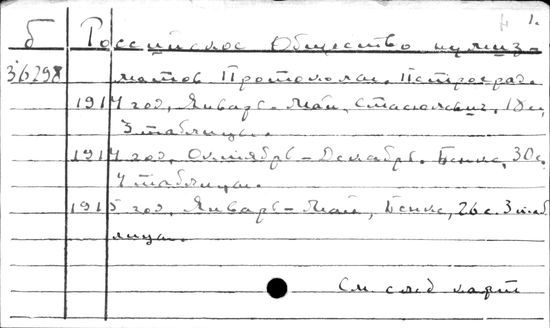 1.
б Российское Общество нумиз-
36298 матов Протоколы. Петроград.
1914 год, Январь-Май, Стасюлевич,
3 таблицы.
1914 год, Октябрь-Декабрь. Бенке, 30 с.
4 таблицы.
1915 год, Январь-Май, Бенке, 26 с. 3 таб-
лицы.
См след карт